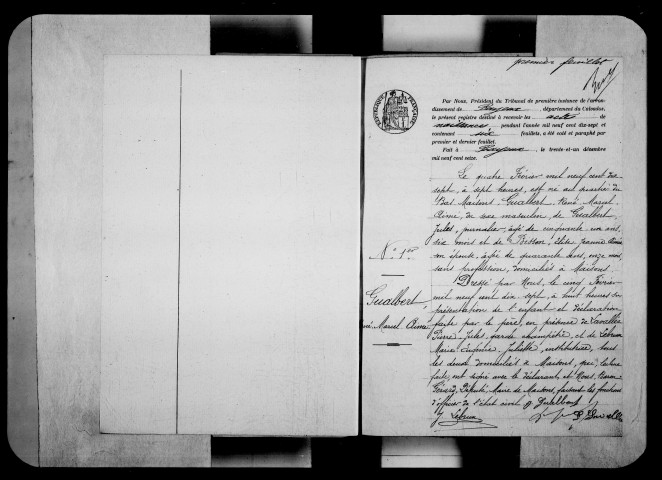 premier feuillet
RÉPUBLIQUE FRANÇAISE
Par Nous, Président du Tribunal de première instance de l'arron-
dissement de Bayeux, département du Calvados,
le présent registre destiné à recevoir les actes de
naissances pendant l'année mil neuf cent dix-sept et
contenant six feuillets, a été coté et paraphé par
premier et dernier feuillet.
Fait à Bayeux, le trente-et-un décembre
mil neuf cent seize.
Le quatre Février mil neuf cent dix
sept, à sept heures, est né au quartier du
Bas Maisons Gualbert, René, Marcel
Aimé, du sexe masculin, de Gualbert,
Jules, journalier, âgé de cinquante un ans,
six mois et de Besson, Jeanne
son épouse, âgée de quarante ans, onze mois,
sans profession, domiciliés à Maisons.
Dressé par Nous, le cinq Février
mil neuf cent dix sept, à huit heures sur
présentation de l'enfant et déclaration
faite par le père, en présence de Lavallée
Pierre, Jules, garde champêtre, et de Lebrun
Marie Eugénie, Juliette, institutrice, tous
les deux domiciliés à Maisons, qui, lecture
faite, ont signé avec le déclarant et Nous
Gérard, Député, Maire de Maisons, faisant les fonctions
d'officier de l'état civil. Gualbert
J. Lebrun
N° 1er
Gualbert,
René Marcel Aimé